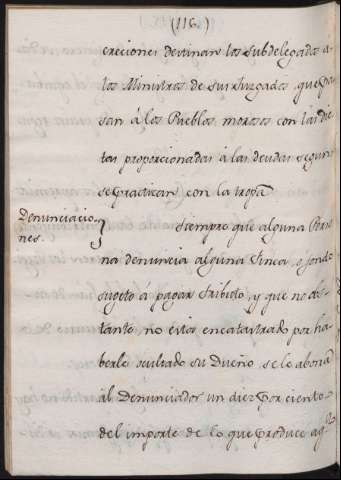 (116.)
creciones destinan los subdelegados a
los Ministros de sus Juzgados, que pa
san á los Pueblos morosos con las die
tas proporcionadas á las deudas segun
se practican con la tropa
Denunciacio-
nes.
Siempre que alguna Perso
na denuncia alguna Finca, o fondo
sugeto á pagar tributo, y que no obs
tante no esta encatastrado por ha
berlo ocultado su Dueño se le abona
al Denunciador un diez por ciento
del importe de lo que produce aq.